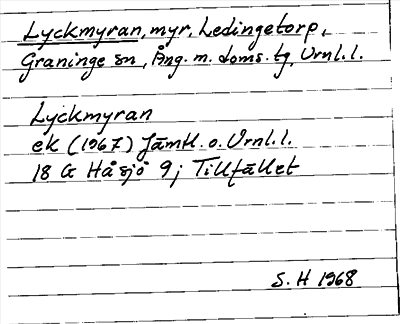 Lyckmyran, myr, Ledingetorp,
Graninge sn, Ång. m. doms. tg, Vrnl.l.
Lyckmyran
ek (1967) Jämtl. o. Vrnl.l.
18 G Håsjö 9; Tillfället
S. H 1968